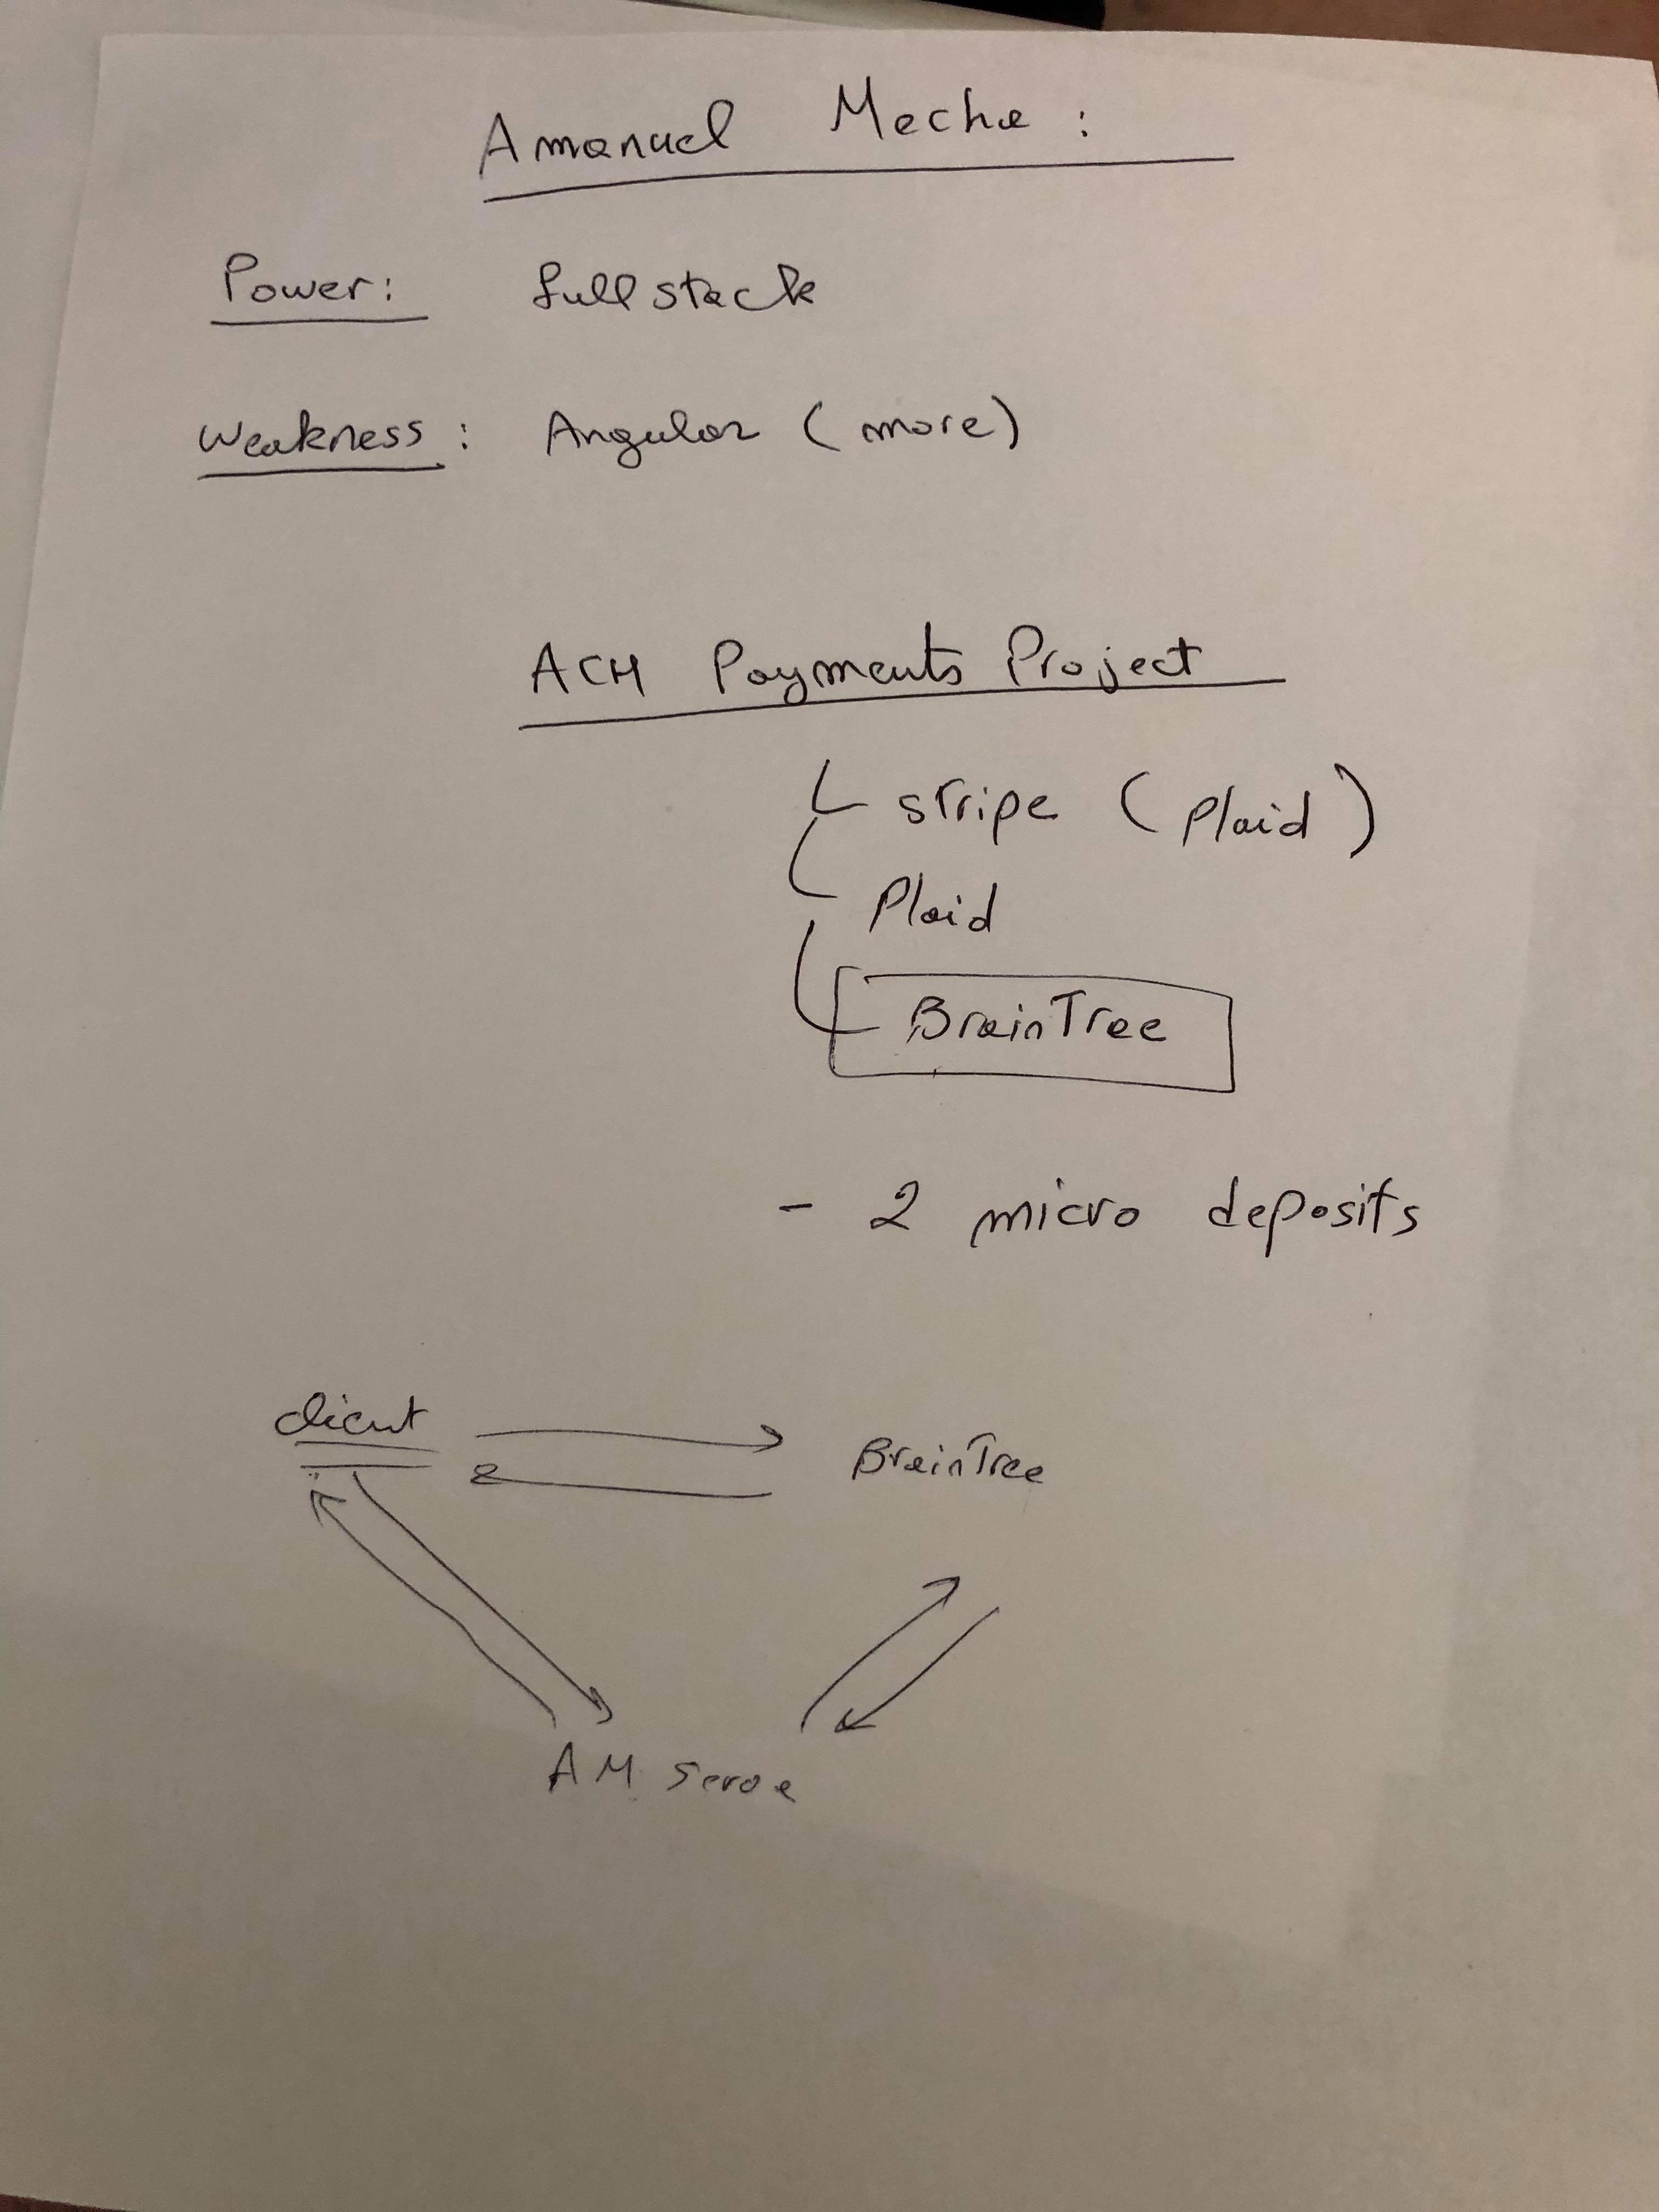 Amanuel Mecha :
Power: full stack
Weakness : Angular (more)
ACH Payments Project
stripe (Plaid)
Plaid
BrainTree
- 2 micro deposits
client
BrainTree
AM